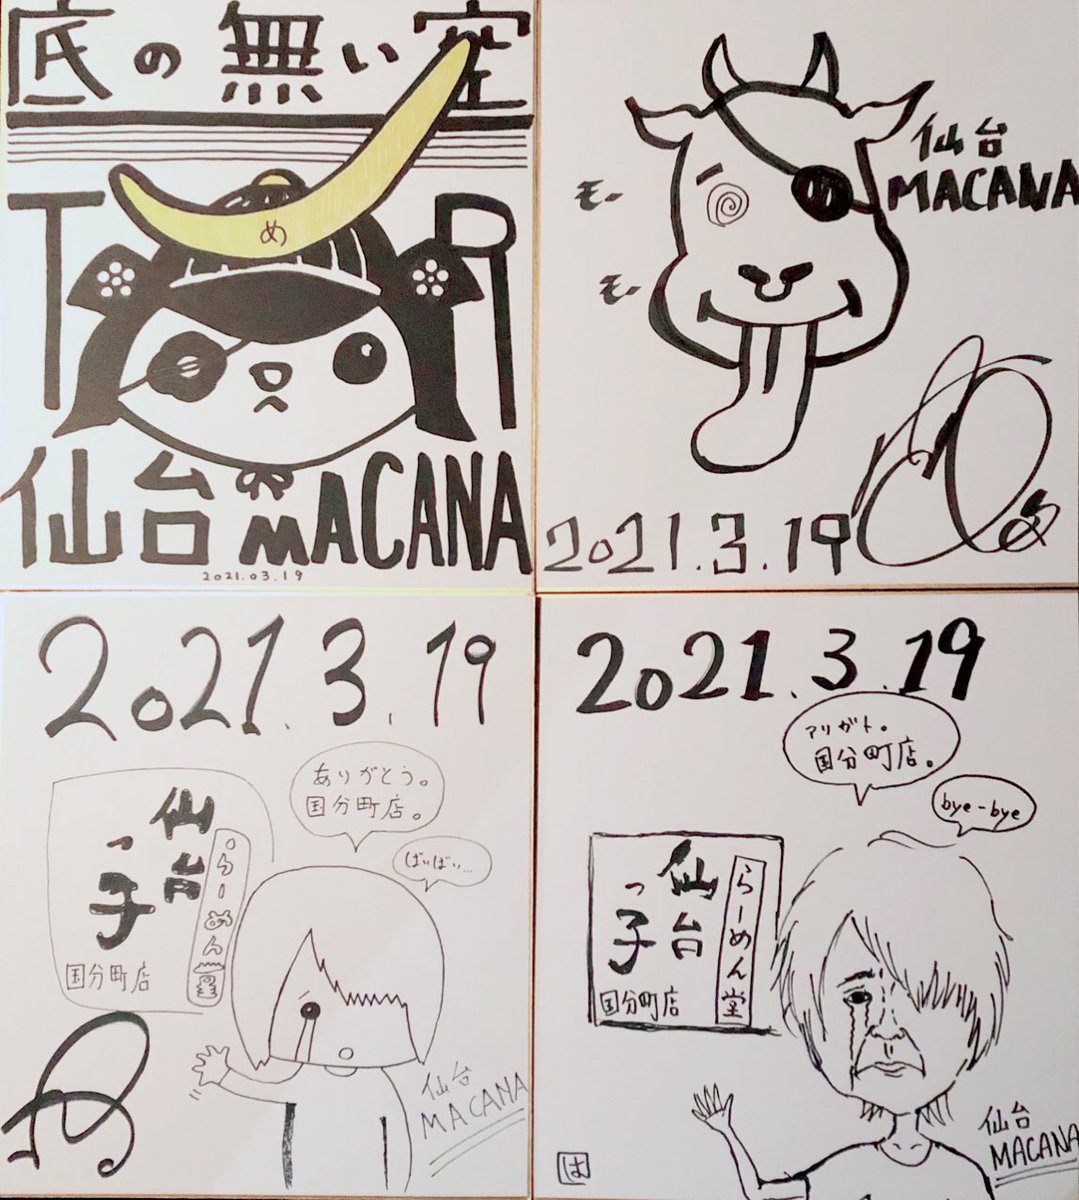 底の無い空
TOUR
め
仙台MACANA
2021.03.19
仙台
MACANA
め
モー
モー
2021.3.19
め
2021.3.19
ありがとう。
国分町店。
ばいばい...
仙台
っ子
らーめん堂
国分町店
仙台
MACANA
2021.3.19
アリガト。
国分町店。
bye-bye
仙台
っ子
らーめん堂
国分町店
仙台
MACANA
は